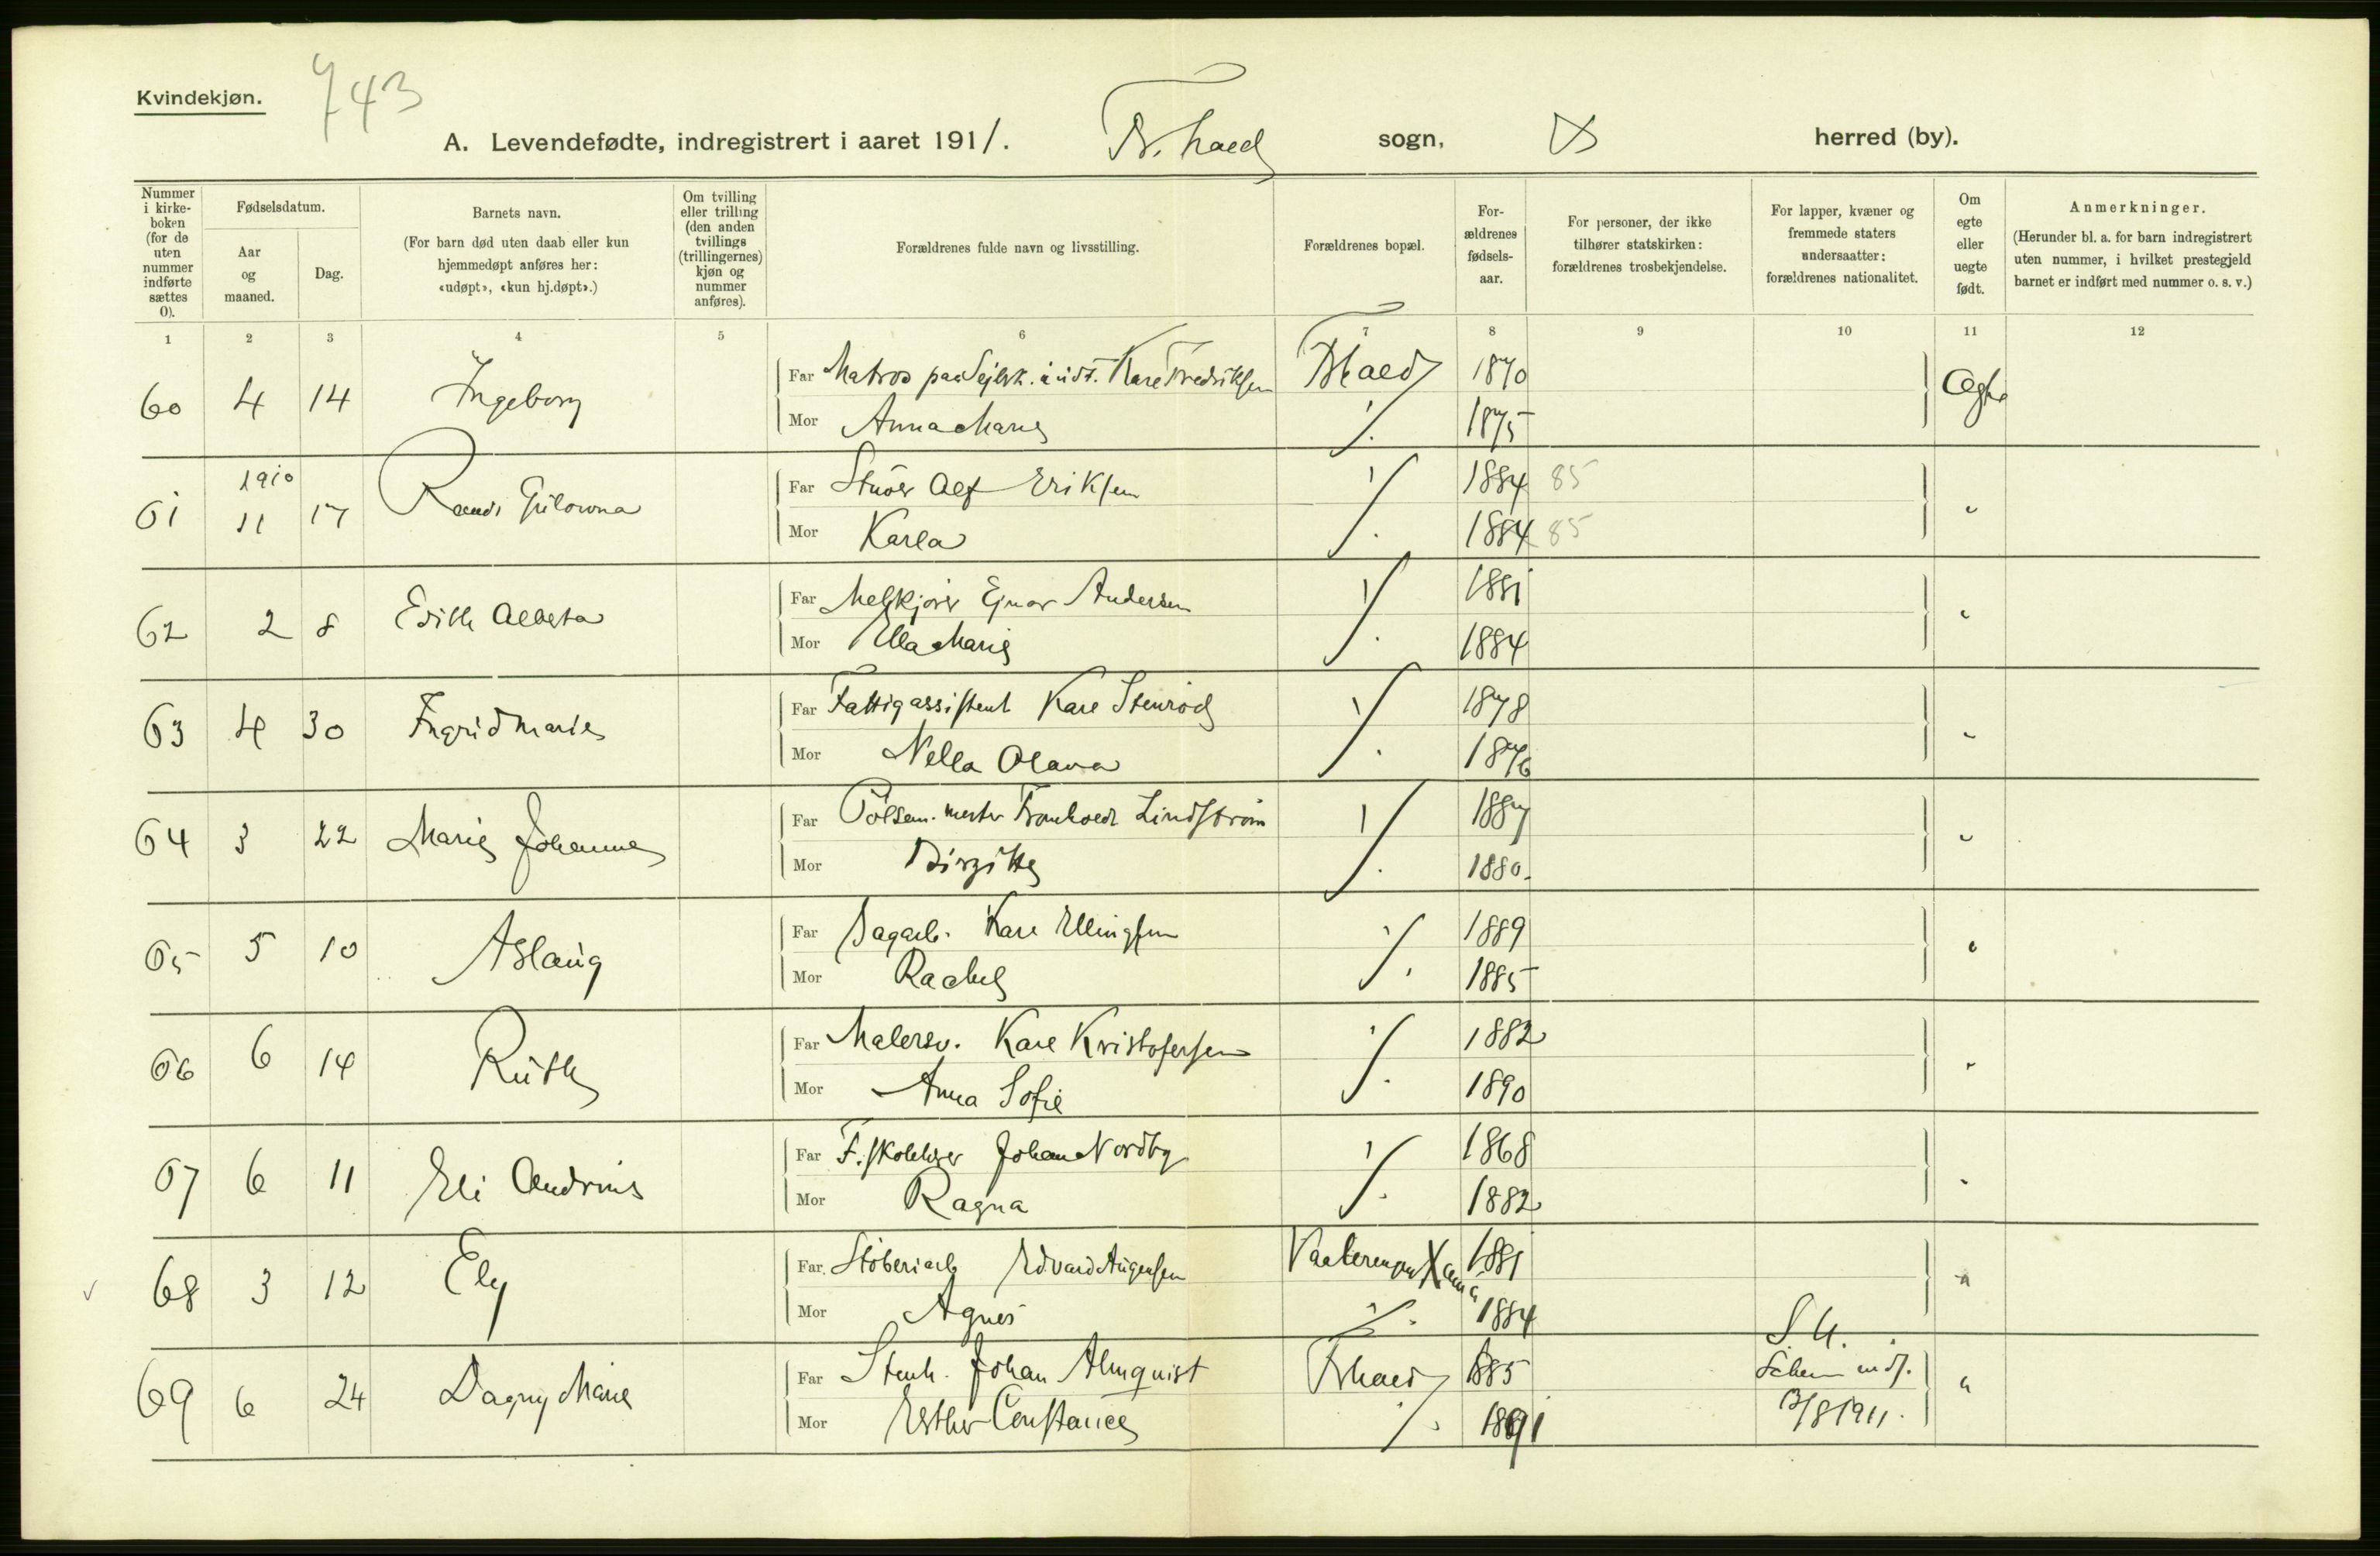 Kvindekjøn.
743
A. Levendefødte, indregistrert i aaret 1911. Fr.hald sogn, herred (by).
Nummer i kirkeboken (for de uten nummer indførte sættes 0).
Fødselsdatum.
Aar og maaned.
Dag.
Barnets navn.
(For barn død uten daab eller kun hjemmedøpt anføres her: «udøpt», «kun hj.døpt».)
Om tvilling eller trilling (den anden tvillings (trillingernes) kjøn og nummer anføres).
Forældrenes fulde navn og livsstilling.
Forældrenes bopæl.
Forældrenes fødselsaar.
For personer, der ikke tilhører statskirken: forældrenes trosbekjendelse.
For lapper, kvæner og fremmede staters undersaatter: forældrenes nationalitet.
Om egte eller uegte født.
Anmerkninger.
(Herunder bl. a. for barn indregistrert uten nummer, i hvilket prestegjeld barnet er indført med nummer o. s. v.)
1 2 3 4 5 6 7 8 9 10 11 12
60 4 14 Ingeborg Far Matros paa Sejlsk. Karl Fredriksen Frhald 1870 Ægte
Mor Anna Marie 1875
61 1910 11 17 Randi Far Alf Eriksen 1884 85 "
Mor Karla 1884 85
62 2 8 Edith Alberta Far Melkjører Ejnar Andersen 1881 "
Mor Ella Marie 1884
63 4 30 Ingrid Marie Far Fattigassistent Karl Stenrød 1878 "
Mor Nella Olava 1876
64 3 22 Marie Johanne Far Pølsem.mester Lindström 1887 "
Mor Birgitte 1880.
65 5 10 Aslaug Far Dagarb. Karl Ellingsen 1889 "
Mor Rachel 1885
66 6 14 Ruth Far Malersv. Karl Kristofersen 1882 "
Mor Anna Sofie 1890
67 6 11 Eli Andrine Far F.skolelærer Johan Nordby 1868 "
Mor Ragna 1882
68 3 12 Ely Far Støberiarb Edvard Augensen Vaalerengen X ania 1881 "
Mor Agnes 1884
69 6 24 Dagny Marie Far Stenh. Johan Almquist Frhald 1885 S.U. "
Mor Esther Constance 1891 13/8 1911.